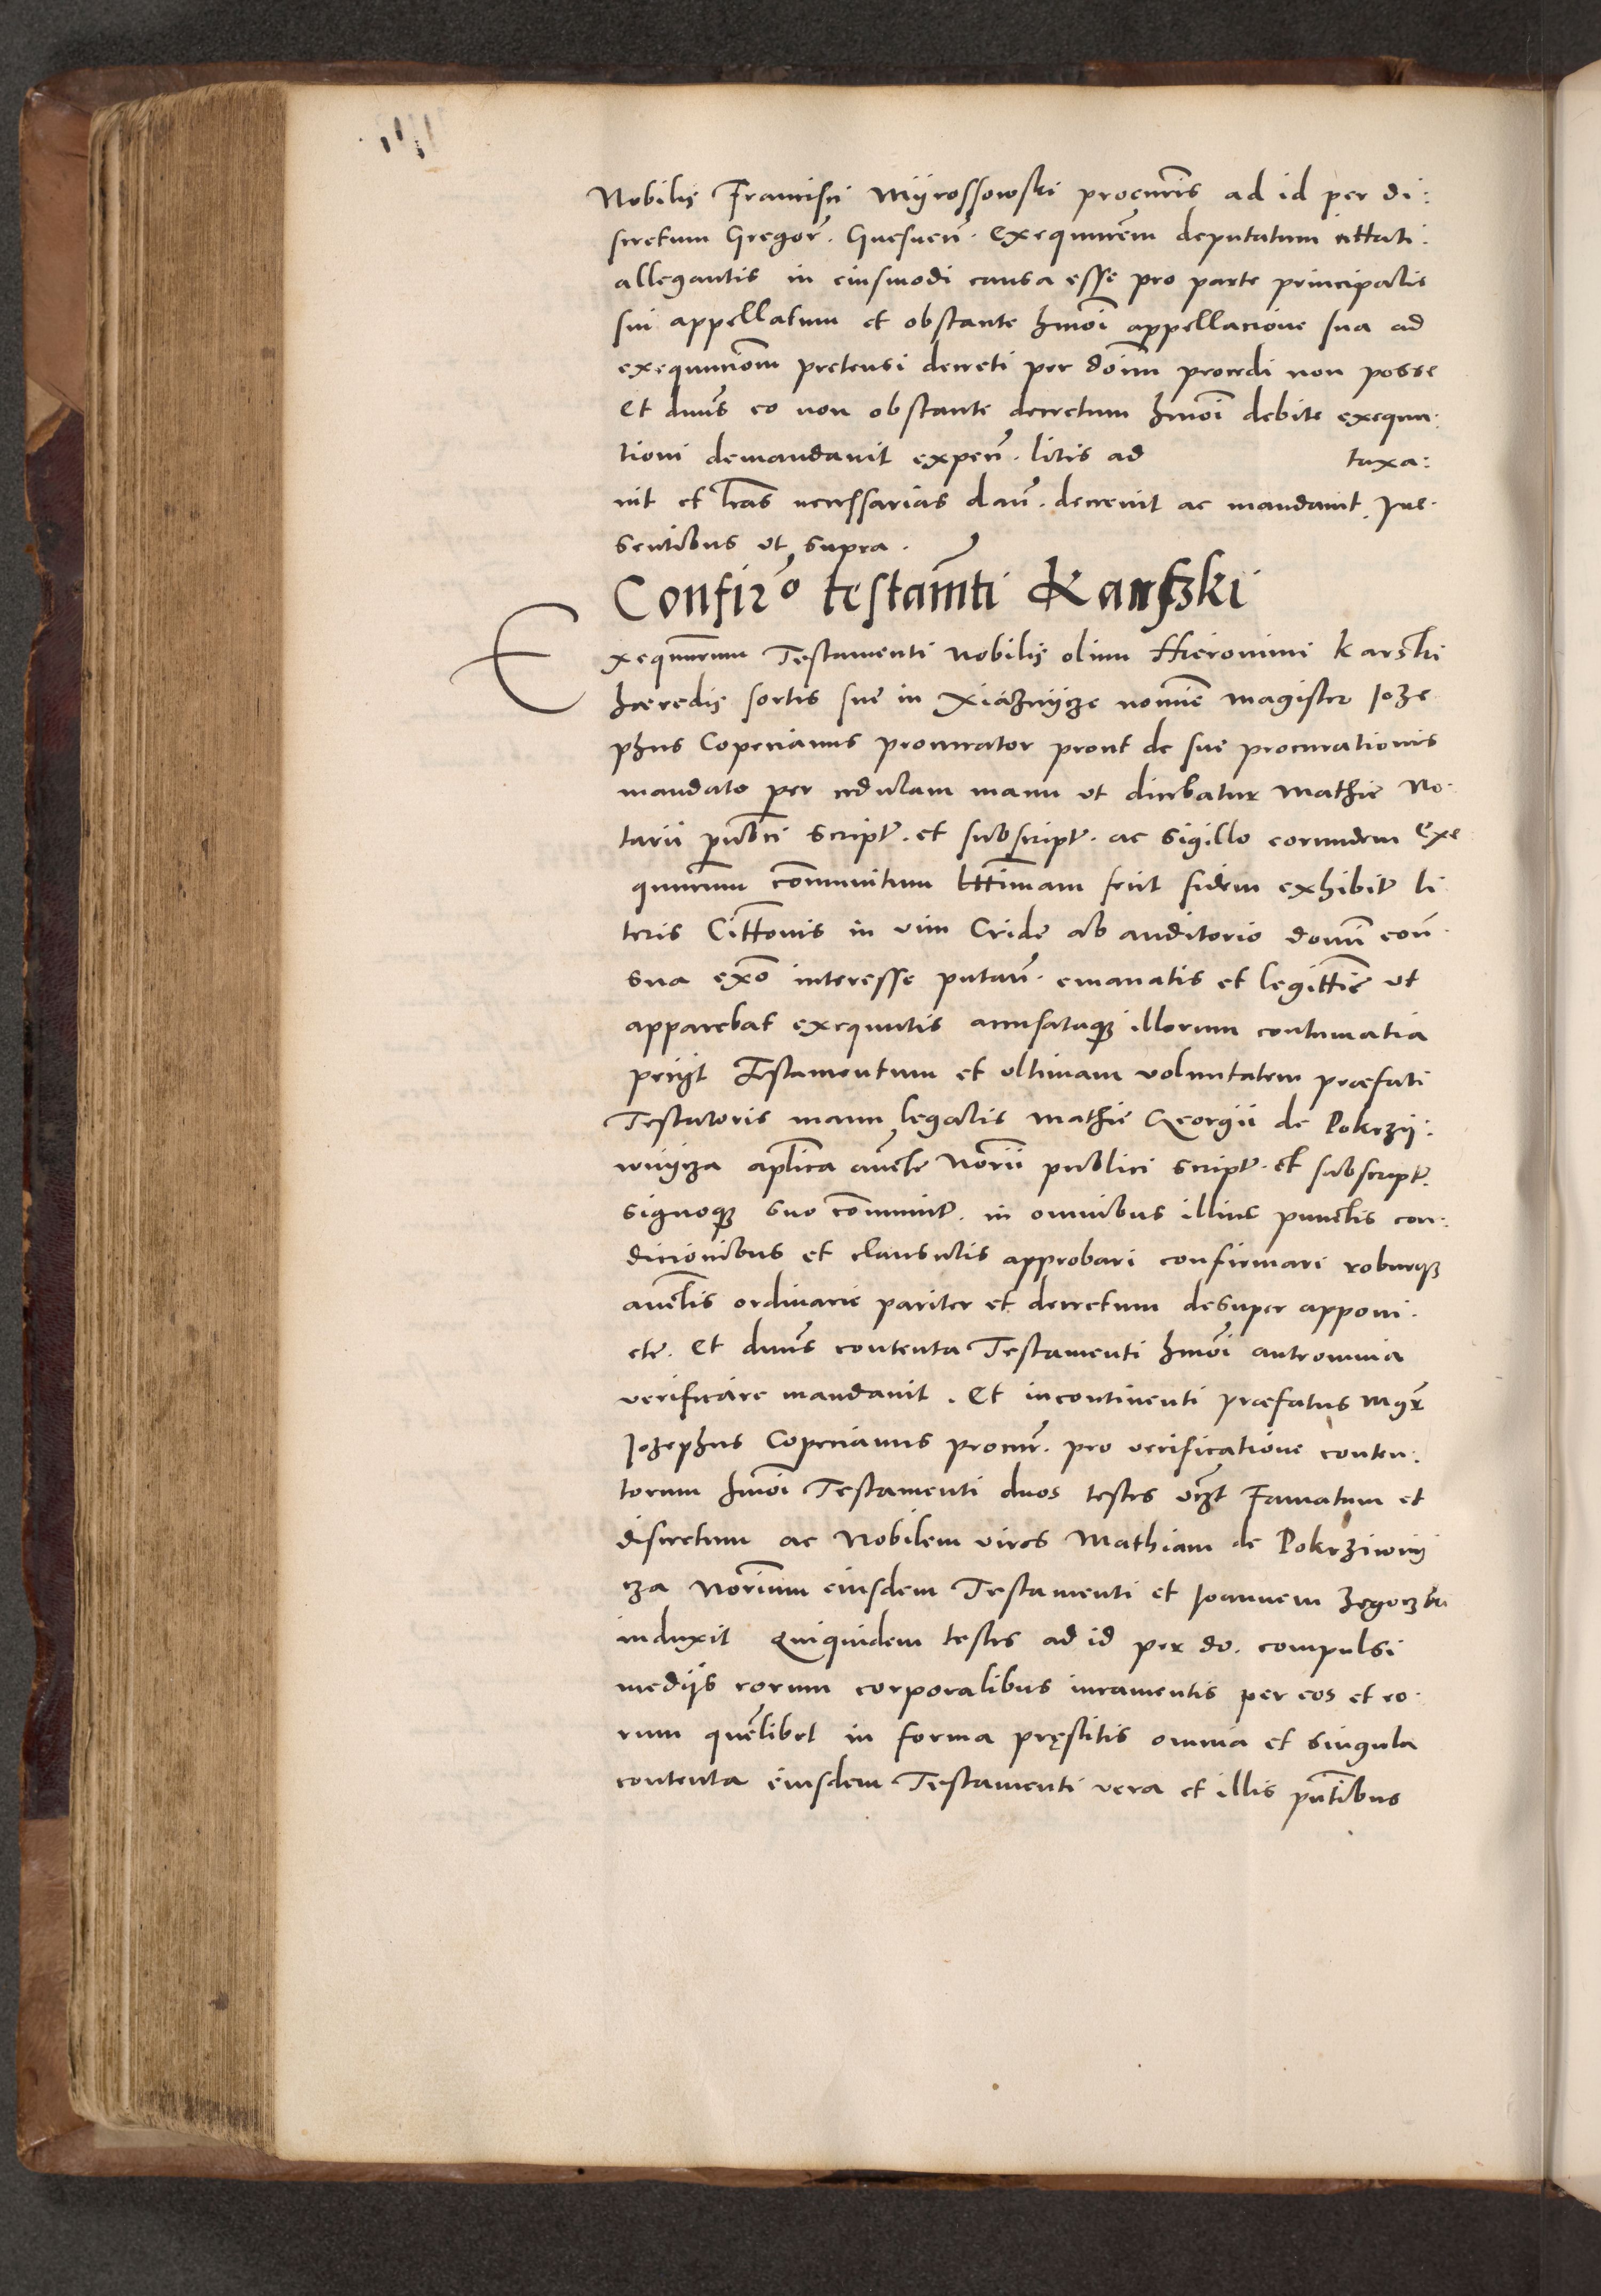 Nobilis Francisci Myrossowski procuris ad id per di:
scretum Gregor. Gnesnen. Exequurem deputatum cittati.
allegantis in eiusmodi causa esse pro parte principalis
sui appellatum et obstante hmoi appellacione sua ad
exequucionem pretensi decreti per donum procedi non posse
Et dnus eo non obstante decretum hmoi debite exequu.
tioni demandavit expen. litis ad taxa:
vit et lras necessarias dan. decrevit ac mandavit. Pre.
sentibus ut supra.
Confiro testamti Karszki
Exequurum Testamenti Nobilis olim Hieronimi Karski
hæredis sortis sue in Xiaznycze nomine magister Joze
phus Copecianus procurator prout de sue procurationis
mandato per cedulam manu ut dicebatur Mathie No.
tarii publici script. et subscript. ac sigillo eorumdem Exe
quurum communitum lttimam fecit fidem exhibit li
teris Cittonis in vim Cride ab auditorio domini eon.
sua exo interesse putan. emanatis et legittime ut
apparebat exequutis accusataque illorum contumatia
petijt Testamentum et ultimam voluntatem præfati
Testatoris manu legalis Mathie Georgii de Pokrzy:
wnycza aplica aucte Norii publici script. et subscript.
signoque suo communit. in omnibus illius punctis con:
dicionibus et clausulis approbari confirmari roburque
auctis ordinarie pariter et decretum desuper apponi.
etc. Et dnus contenta Testamenti hmoi antromnia
verificare mandavit. Et incontinenti præfatus Mgr
Jozephus Copecianus procur. pro verificatione conten:
torum hmoi Testamenti duos testes vizt Famatum et
discretum ac Nobilem viros Mathiam de Pokrziwny
cza Norium eiusdem Testamenti et Joannem Zegoczki
induxit Quiquidem testes ad id per do. compulsi
medijs eorum corporalibus iuramentis per eos et eo.
rum quemlibet in forma pręstitis omnia et singula
contenta eiusdem Testamenti vera et illis pntibus